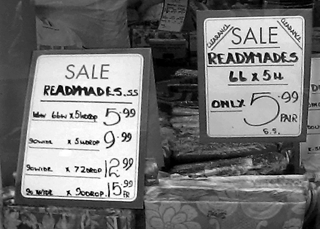 SALE
READYMADES.S.S
66W x 54 DROP 5.99
90 WIDE x 54 DROP 9.99
90 WIDE x 72 DROP 12.99
90 WIDE x 90 DROP 15.99 PR
CLEARANCE
CLEARANCE
SALE
READYMADES
66 x 54
ONLY 5.99
PAIR
S.S.